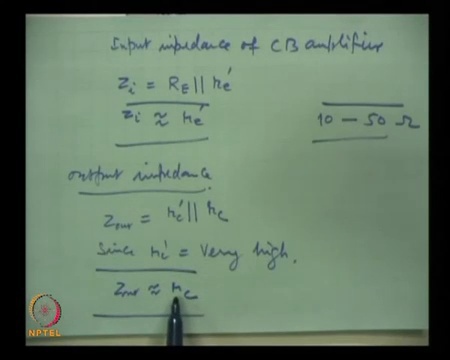 Input impedance of CB amplifier
Zi = RE || re'
Zi ≈ re'
10 – 50 Ω
output impedance
Zout = rc' || rc
Since rc' = Very high.
Zout ≈ rc
NPTEL